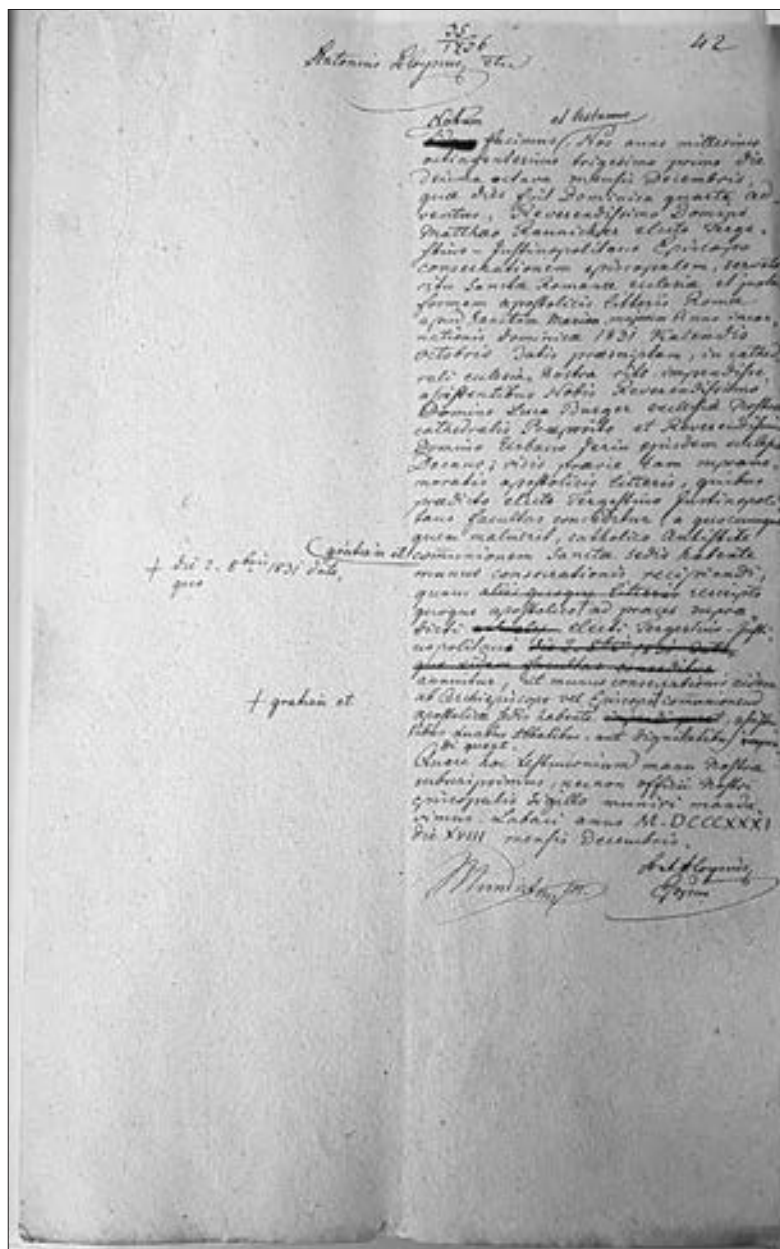 35
1836
42
Antonius Aloysius, etc
Notum et testamur
facimus Nos anno millesimo
octingentesimo trigesimo primo die
decima octava mensis Decembris,
quæ dies fuit Dominica quarta ad
ventus, Reverendissimo Domino
Matthæo Raunicher electo Terge-
stino-Justinopolitano Episcopo
consecrationem episcopalem, servato
ritu Sanctæ Romanæ ecclesiæ et juxta
formam apostolicis litteris Romæ
apud Sanctam Mariam majorem Anno incar
nationis dominicæ 1831 Kalendis
Octobris datis præscriptam, in cathed
rali ecclesia Nostra rite impendisse
assistentibus Nobis Reverendissimo
Domino Luca Burger ecclesiæ Nostræ
cathedralis Præposito et Reverendissimo
Domino Urbano Jerin ejusdem ecclesiæ
Decano; visis prævie tam supra me-
moratis apostolicis litteris, quibus
prædicto electo Tergestino Justinopoli
tano facultas conceditur, a quocunque
quem maluerit, catholico Antistite
gratiam et communionem Sanctæ sedis habente
+ die 2. 8bris 1831 dato,
quo
munus consecrationis recipiendi,
quam alias quoque litteras rescripto
quoque apostolico+ ad preces supra
dicti electi Tergestino-Justi-
nopolitano die 2. 8bris 1831 dato,
quo eidem facultas conceditur
annuitur, ut munus consecrationis eidem
+ gratiam et
ab Archiepiscopo vel Episcopo+ communionem
apostolicæ sedis habente assisten
tibus duabus Abbatibus aut dignitatibus
di queat.
Quare hoc testimonium manu Nostra
subscripsimus, necnon officii Nostri
episcopalis sigillo muniri manda
vimus. Labaci anno M.DCCCXXXI
die XVIII mensis Decembris.
Ant Aloysius